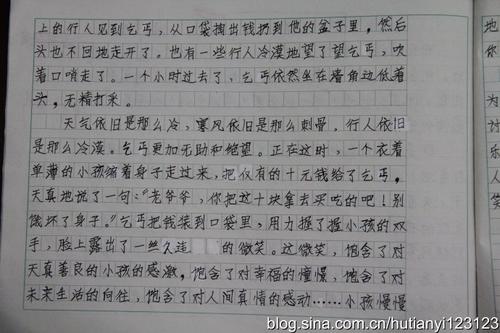 上的行人见到乞丐，从口袋掏出钱扔到他的盆子里，然后
头也不回地走开了。也有一些行人冷漠地望了望乞丐，吹
着口哨走了。一个小时过去了，乞丐依然坐在墙角边低着
头，无精打采。
天气依旧是那么冷，寒风依旧是那么刺骨。行人依旧
是那么冷漠。乞丐更加无助和绝望。正在这时，一个衣着
单薄的小孩缩着身子走过来，把仅有的十元钱给了乞丐，
天真地说了一句：“老爷爷，你把这十块拿去买吃的吧！别
饿坏了身子。”乞丐把钱装到口袋里，用力握了握小孩的双
手，脸上露出了一丝久违的微笑。这微笑，饱含了对
天真善良的小孩的感激，饱含了对幸福的憧憬，饱含了对
未来生活的向往，饱含了对人间真情的感动……小孩慢慢
地
你
为
讨
乐
人
笑
blog.sina.com.cn/hutianyi123123